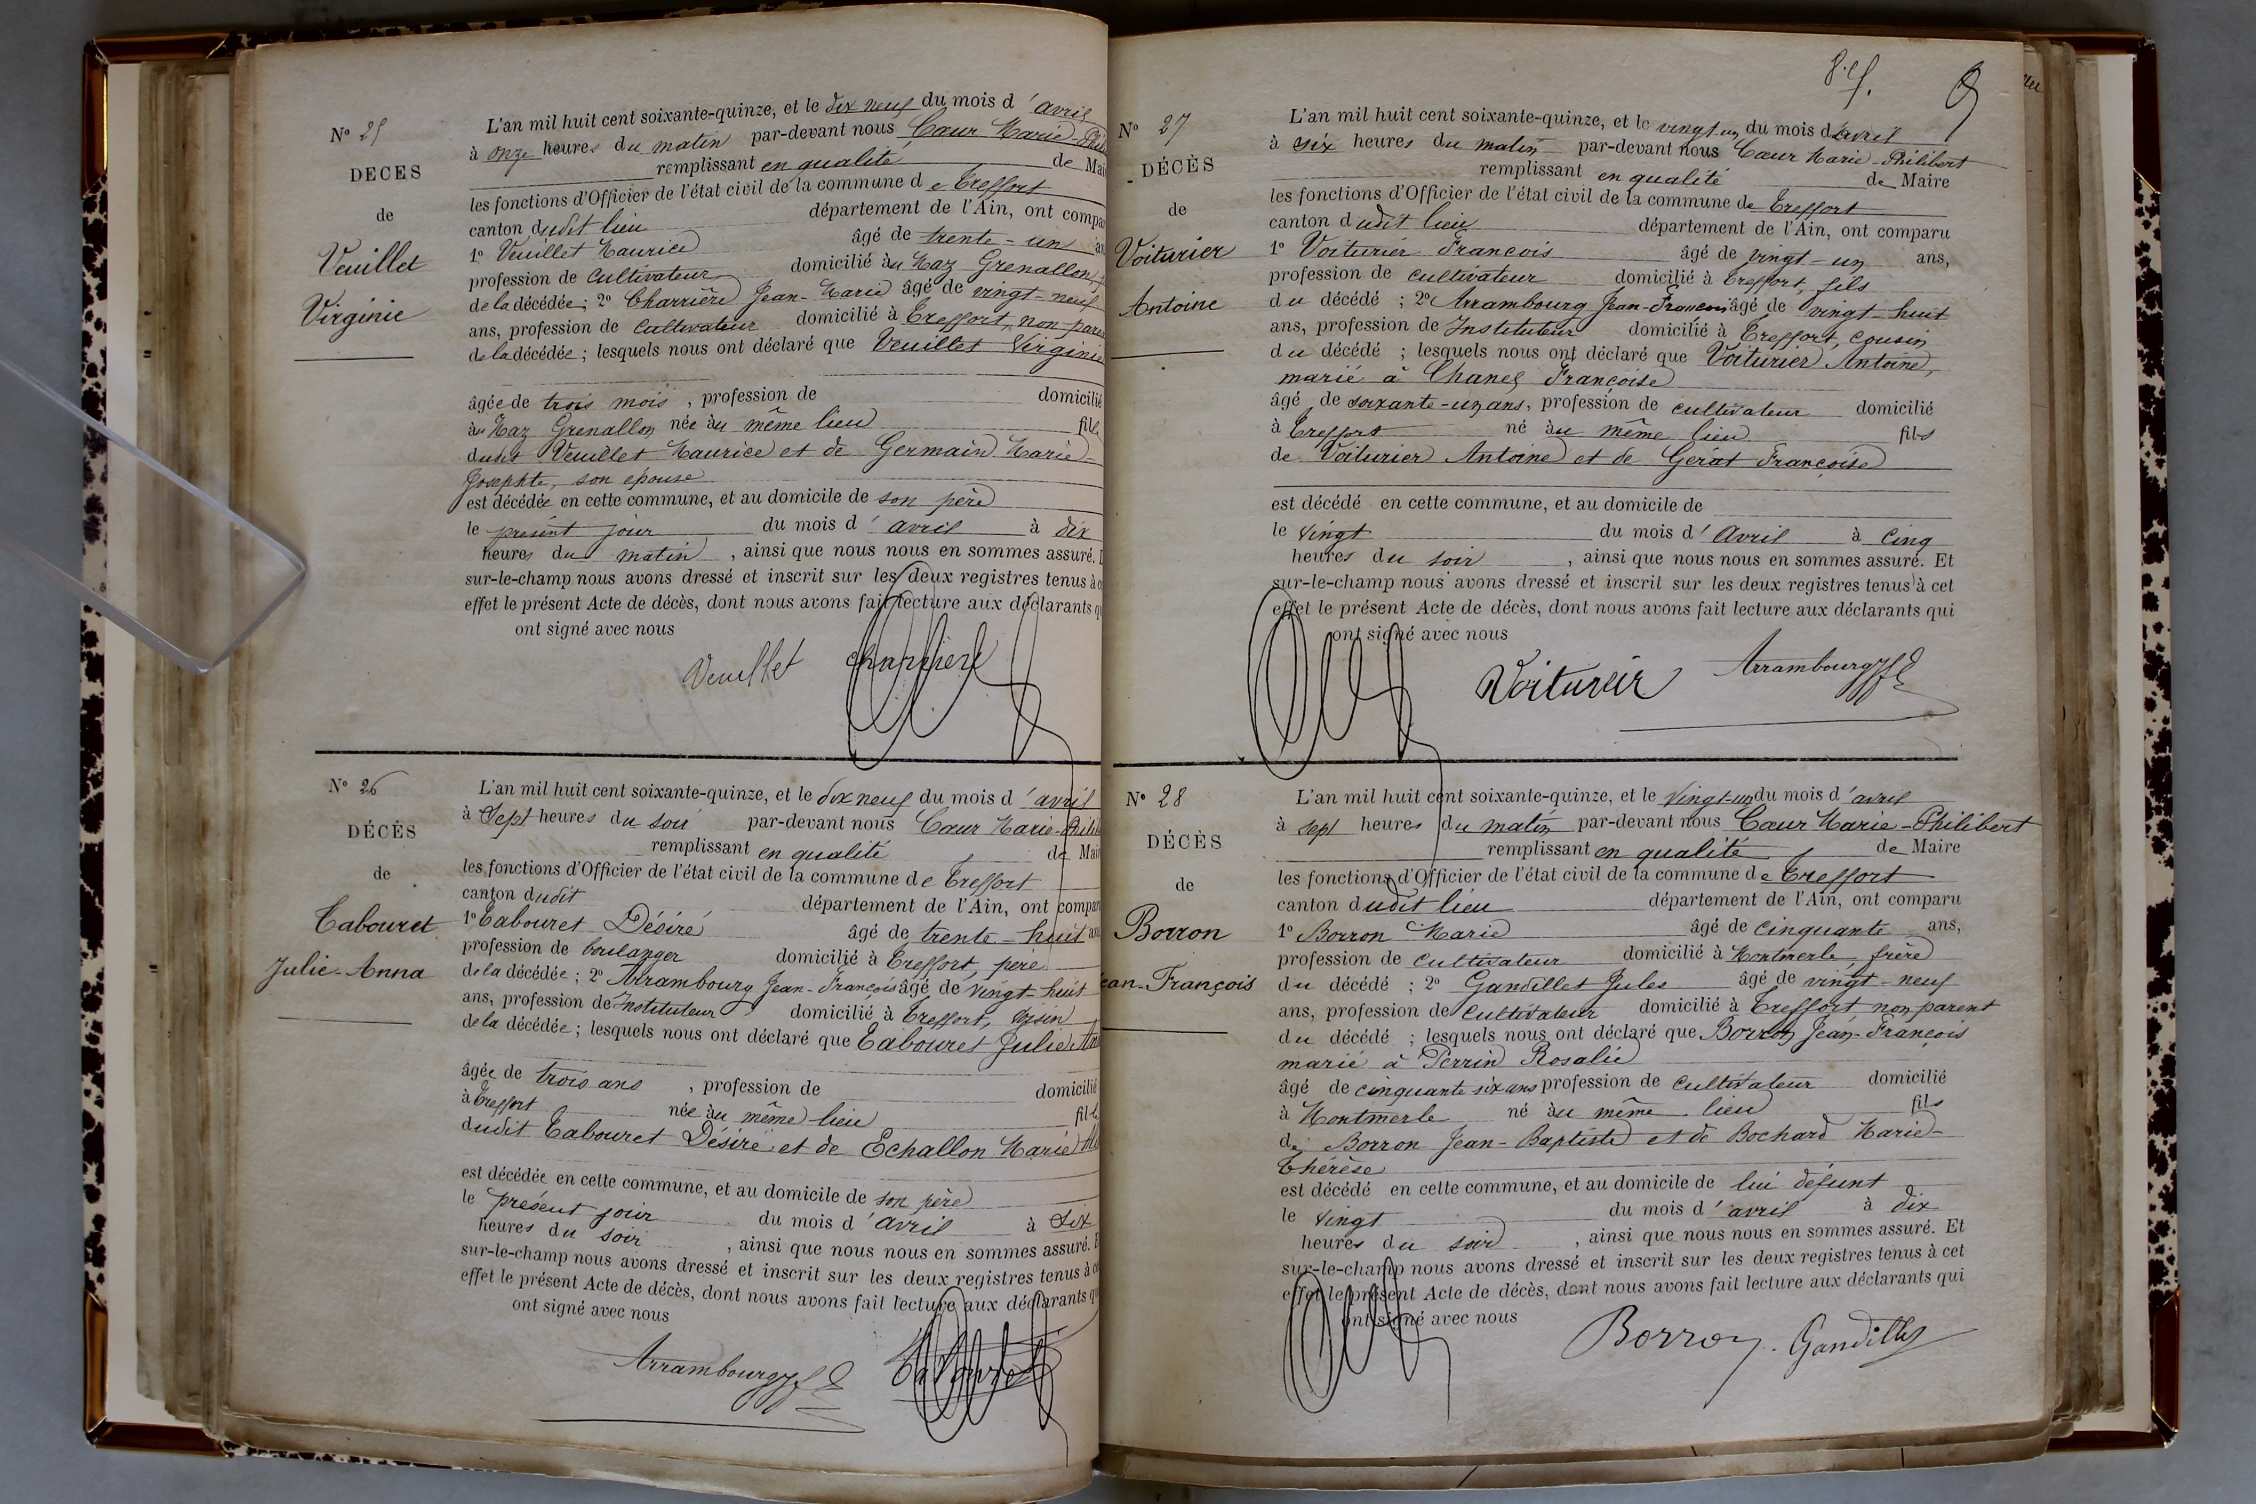 N° 25
DÉCÈS
de
Veuillet
Virginie
L'an mil huit cent soixante-quinze, et le dix neuf du mois d'avril
à onze heures du matin par-devant nous Cœur Marie-Phili
remplissant en qualité de Mai
les fonctions d'Officier de l'état civil de la commune de Treffort
canton dudit lieu département de l'Ain, ont compar
1° Veuillet Maurice âgé de trente-un an
profession de Cultivateur domicilié au Maz Grenallon,
de la décédée; 2° Charrière Jean-Marie âgé de vingt-neuf
ans, profession de Cultivateur domicilié à Treffort, non paren
de la décédée; lesquels nous ont déclaré que Veuillet Virginie
âgée de trois mois, profession de domicilié
au Maz Grenallon née au même lieu fille
dudit Veuillet Maurice et de Germain Marie-
Josephte, son épouse
est décédée en cette commune, et au domicile de son père
le présent jour du mois d'avril à dix
heures du matin, ainsi que nous nous en sommes assuré. E
sur-le-champ nous avons dressé et inscrit sur les deux registres tenus à c
effet le présent Acte de décès, dont nous avons fait lecture aux déclarants q
ont signé avec nous
Veuillet Charriere
N° 26
DÉCÈS
de
Tabouret
Julie-Anna
L'an mil huit cent soixante-quinze, et le dix neuf du mois d'avril
à Sept heures du soir par-devant nous Cœur Marie-Phili
remplissant en qualité de Mai
les fonctions d'Officier de l'état civil de la commune de Treffort
canton dudit département de l'Ain, ont compar
1° Tabouret Désiré âgé de trente-huit ans
profession de boulanger domicilié à Treffort, père
de la décédée; 2° Arrambourg Jean-François âgé de vingt-huit
ans, profession de Instituteur domicilié à Treffort, cousin
de la décédée; lesquels nous ont déclaré que Tabouret Julie Ann
âgée de trois ans, profession de domicilié
à Treffort née au même lieu fille
dudit Tabouret Désiré et de Echallon Marie
est décédée en cette commune, et au domicile de son père
le présent jour du mois d'avril à six
heures du soir, ainsi que nous nous en sommes assuré. E
sur-le-champ nous avons dressé et inscrit sur les deux registres tenus à c
effet le présent Acte de décès, dont nous avons fait lecture aux déclarants qu
ont signé avec nous
Arrambourg Tabouret
N° 27
DÉCÈS
de
Voiturier
Antoine
L'an mil huit cent soixante-quinze, et le vingt un du mois d'avril
à six heures du matin par-devant nous Cœur Marie-Philibert
remplissant en qualité de Maire
les fonctions d'Officier de l'état civil de la commune de Treffort
canton dudit lieu département de l'Ain, ont comparu
1° Voiturier François âgé de vingt-un ans,
profession de cultivateur domicilié à Treffort, fils
du décédé; 2° Arrambourg Jean-François âgé de vingt huit
ans, profession de Instituteur domicilié à Treffort, cousin
du décédé; lesquels nous ont déclaré que Voiturier Antoine,
marié à Chanel Françoise
âgé de soixante-un ans, profession de cultivateur domicilié
à Treffort né au même lieu fils
de Voiturier Antoine et de Gerat Françoise
est décédé en cette commune, et au domicile de
le vingt du mois d'Avril à cinq
heures du soir, ainsi que nous nous en sommes assuré. Et
sur-le-champ nous avons dressé et inscrit sur les deux registres tenus à cet
effet le présent Acte de décès, dont nous avons fait lecture aux déclarants qui
ont signé avec nous
Voiturier Arrambourg
N° 28
DÉCÈS
de
Borron
ean-François
L'an mil huit cent soixante-quinze, et le vingt-un du mois d'avril
à sept heures du matin par-devant nous Cœur Marie-Philibert
remplissant en qualité de Maire
les fonctions d'Officier de l'état civil de la commune de Treffort
canton dudit lieu département de l'Ain, ont comparu
1° Borron Marie âgé de cinquante ans,
profession de cultivateur domicilié à Montmerle, frère
du décédé; 2° Gandillet Jules âgé de vingt-neuf
ans, profession de Cultivateur domicilié à Treffort, non parent
du décédé; lesquels nous ont déclaré que Borron Jean-François
marié à Perrin Rosalie
âgé de cinquante six ans profession de cultivateur domicilié
à Montmerle né au même lieu fils
de Borron Jean-Baptiste et de Bochard Marie-
Thérèse
est décédé en cette commune, et au domicile de lui défunt
le vingt du mois d'avril à dix
heures du soir, ainsi que nous nous en sommes assuré. Et
sur-le-champ nous avons dressé et inscrit sur les deux registres tenus à cet
effet le présent Acte de décès, dont nous avons fait lecture aux déclarants qui
ont signé avec nous
Borron Gandillet